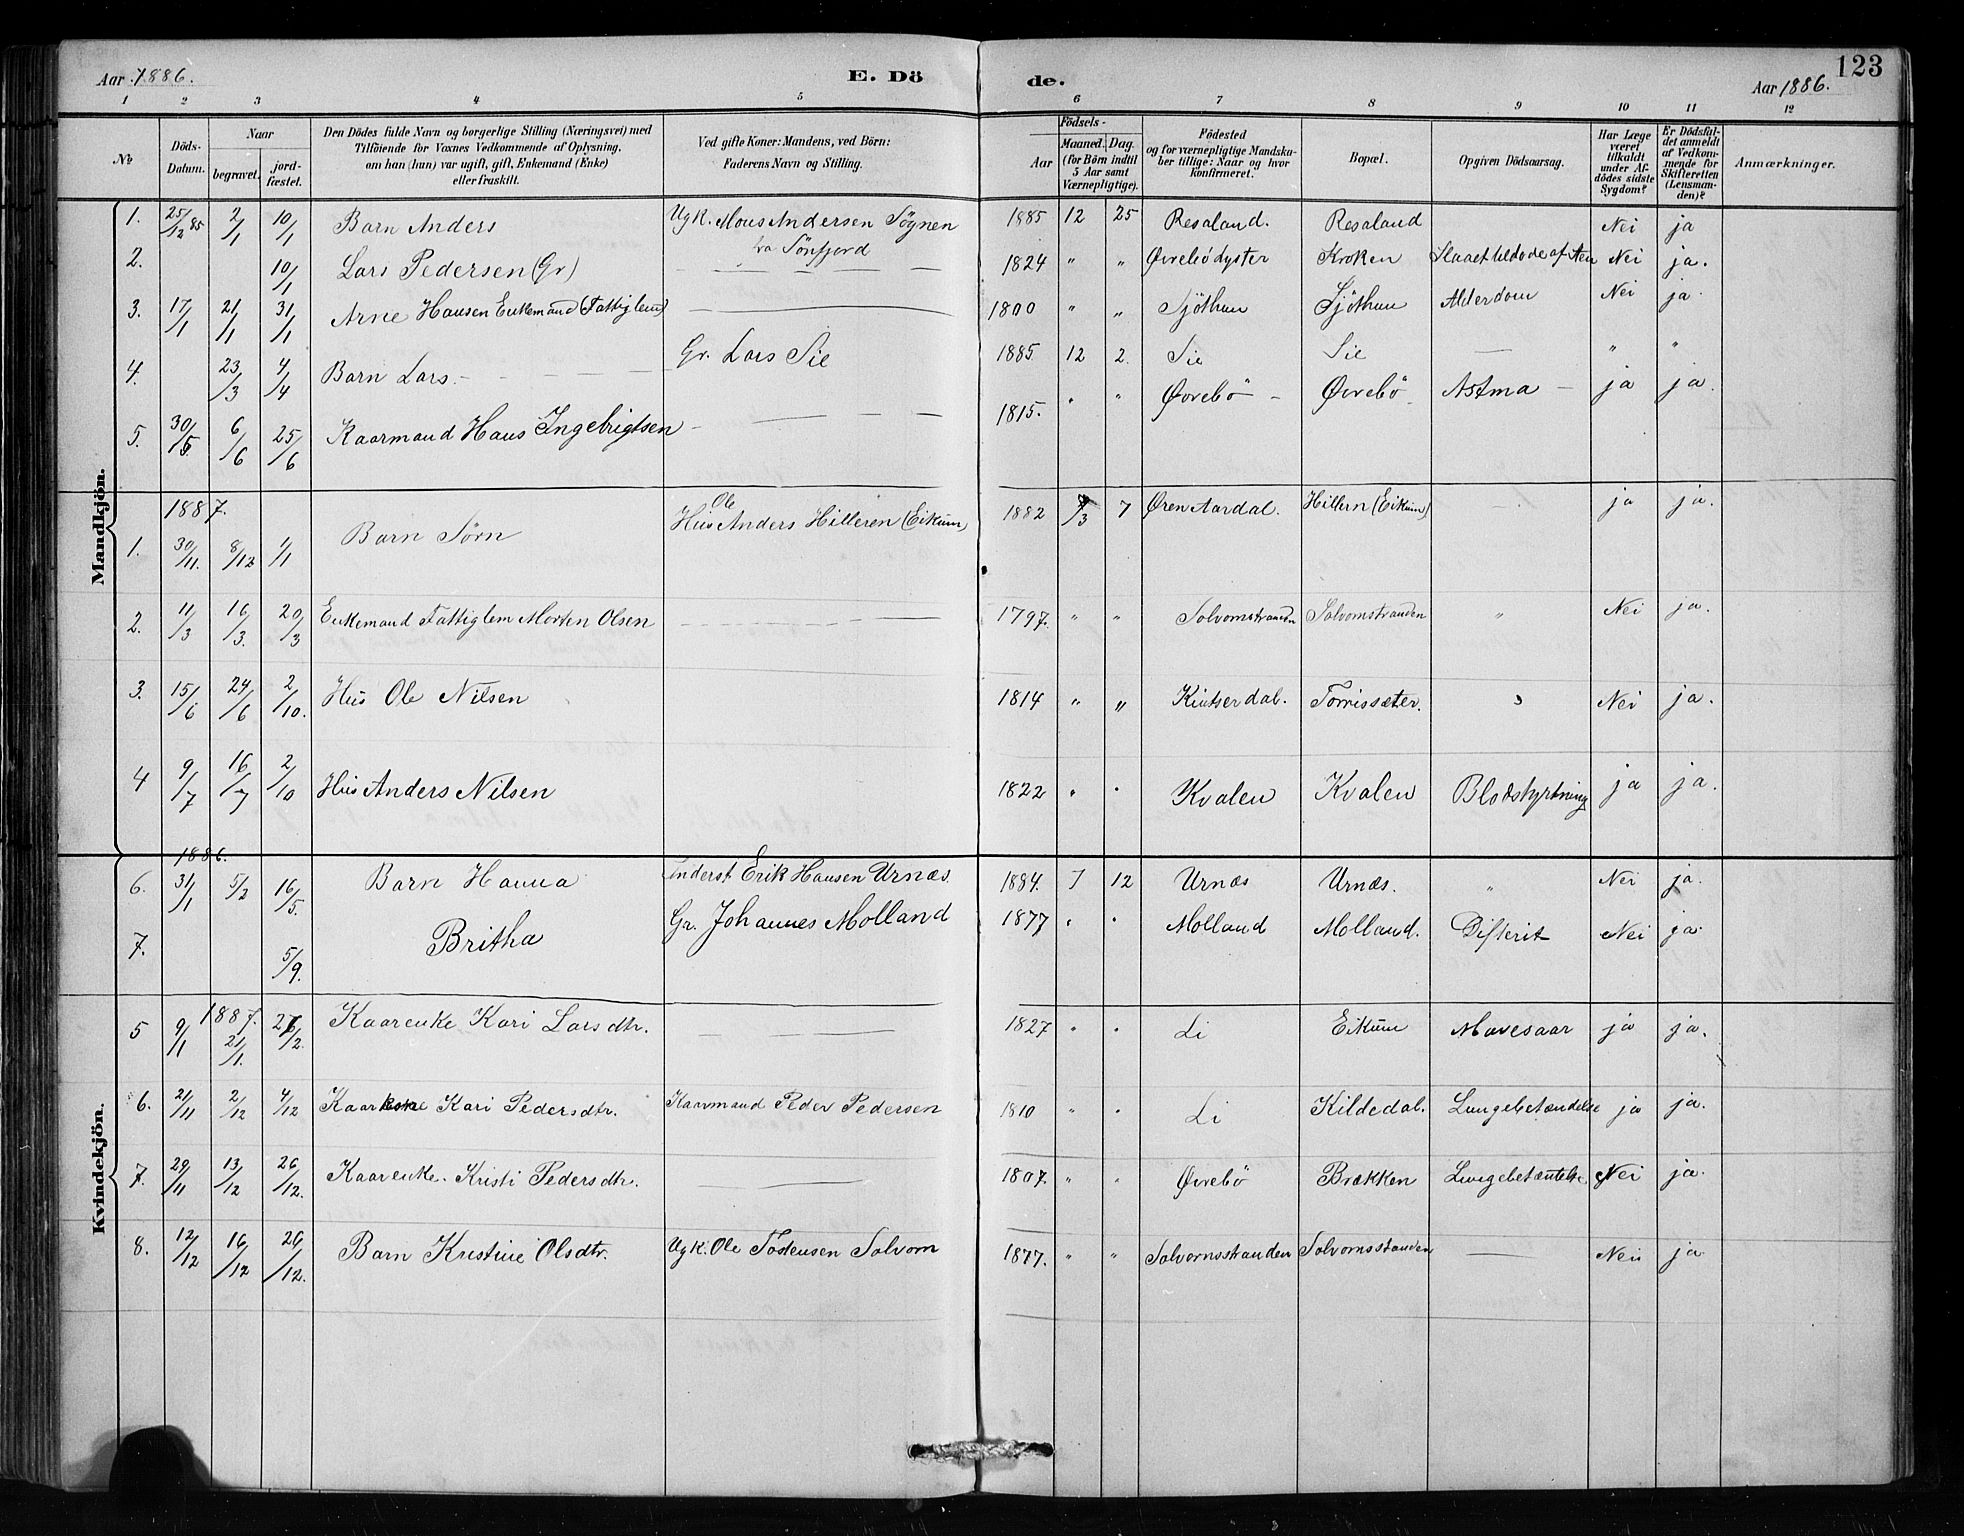 Aar 1886. E. Dö de. Aar 1886. 123
1 2 3 4 5 6 7 8 9 10 11 12
No
Döds-Datum.
Naar
begravet. jord-fæstet.
Den Dödes fulde Navn og borgerlige Stilling (Næringsvei) med
Tilföiende for Voxnes Vedkommende af Oplysning,
om han (hun) var ugift, gift, Enkemand (Enke)
eller fraskilt.
Ved gifte Koner: Mandens, ved Börn:
Faderens Navn og Stilling.
Födsels-
Aar
Maaned. Dag.
(for Börn indtil
5 Aar samt
Værnepligtige).
Födested
og for værnepligtige Mandskaber tillige: Naar og hvor
konfirmeret.
Bopæl.
Opgiven Dödsaarsag.
Har Læge
været
tilkaldt
under Afdödes sidste
Sygdom?
Er Dödsfaldet anmeldt
af Vedkommende for
Skifteretten
(Lensmanden)?
Anmærkninger.
Mandkjön.
1. 25/12 85 2/1 10/1 Barn Anders Ugk. Mons Andersen Sögnen 1885 12 25 Resaland. Resaland Nei ja
fra Sönfjord
2. 10/1 Lars Pedersen (Gr) 1824 " " Øvrebö Kroken Nei ja.
3. 17/1 21/1 31/1 Arne Hansen Enkemand (Fattiglem) 1800 " " Sjöthun Sjöthun Alderdom Nei ja.
4. 23/3 4/4 Barn Lars. Gr. Lars Sie 1885. 12 2. Sie Sie — " "
5. 30/5 6/6 25/6 Kaarmand Hans Ingebrigtsen — 1815. " " Øvrebö Øvrebö Astma ja ja.
1887.
1. 30/11. 8/12 1/1 Barn Sörn Hus Ole Anders Hilleren (Eikum) 1882 3 7 Øren Aardal. Hillern (Eikum) ja ja.
2. 11/3 16/3. 20/3 Enkemand Fattiglem Morten Olsen 1797. " " Solvornstranden Solvomstranden " Nei ja.
3. 15/6 24/6 2/10. Hus Ole Nilsen 1814 " " Kintserdal. Torrissæter. " Nei ja.
4 9/7 16/7 2/10 Hus Anders Nilsen 1822 " " Kvalen Kvalen Blodstyrtning ja ja.
Kvindekjön.
1886.
6. 31/1 5/2 16/5. Barn Hanna Inderst Erik Hansen Urnæs. 1884. 7 12 Urnæs Urnæs. " Nei ja.
7. 5/9. Britha Gr. Johannes Molland 1877 " " Molland Molland. Difterit Nei ja.
1887.
5 9/1 21/1. 27/2. Kaarenke Kari Larsdtr. — 1827 " " Li Eikum Mavesaar ja ja.
6. 21/11 2/12 4/12 Kaarkone Kari Pedersdtr. Kaarmand Peder Pedersen 1810 " " Li Kildedal. Lungebetændelse ja ja.
7. 29/11 13/12 26/12. Kaarenke. Kristi Pedersdtr. — 1807. " " Øvrebö Brækken Lungebetændelse Nei ja.
8. 12/12 16/12 26/12. Barn Kristine Olsdtr. Ugk. Ole Tostensen Solvorn 1877. " " Solvornsstranden Solvornsstranden — Nei ja